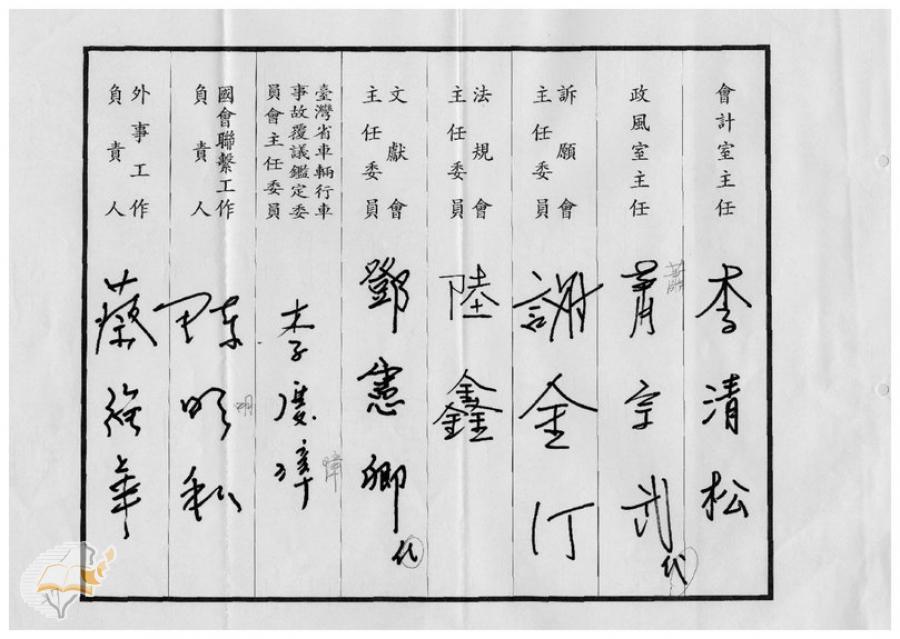 會計室主任
李清松
政風室主任
蕭
代
訴願會
主任委員
謝金汀
法規會
主任委員
陸鑫
文獻會
主任委員
鄧憲卿
代
臺灣省車輛行車
事故覆議鑑定委
員會主任委員
李慶
國會聯繫工作
負責人
陳明
外事工作
負責人
蔡